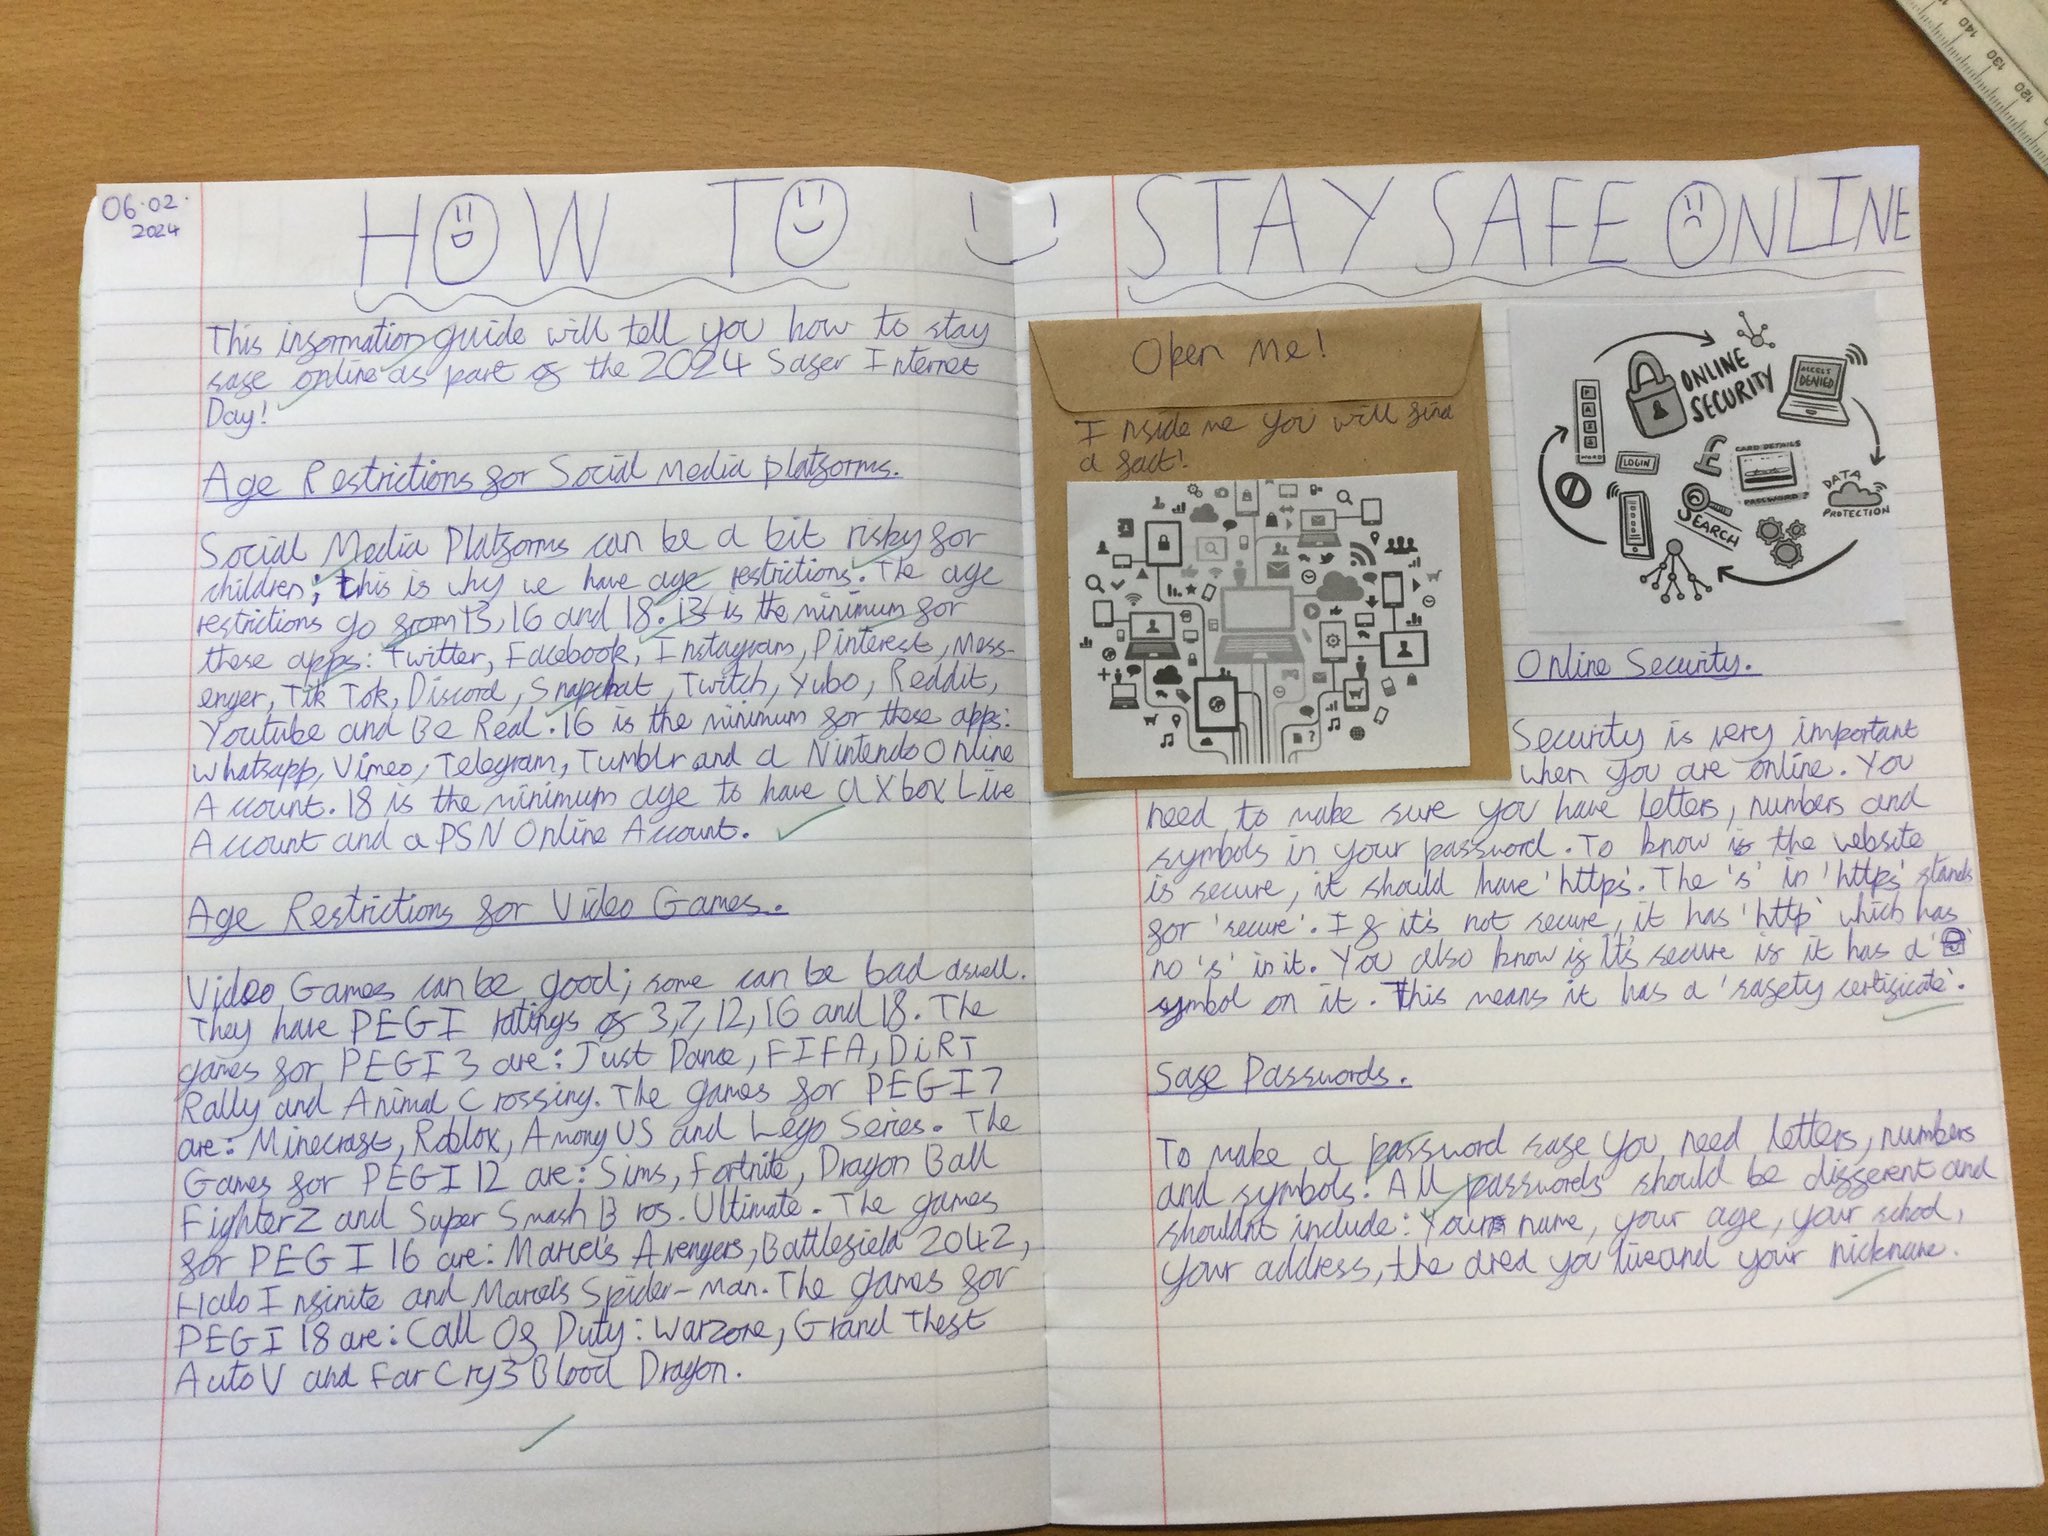 06.02.
2024
HOW TO STAY SAFE ONLINE
This information guide will tell you how to stay
safe online as part of the 2024 Safer Internet
Day!
Age Restrictions for Social Media Platforms.
Social Media Platforms can be a bit risky for
children; this is why we have age restrictions. The age
restrictions go from 13, 16 and 18. 13 is the minimum for
these apps: Twitter, Facebook, Instagram, Pinterest, Mess-
enger, Tik Tok, Discord, Snapchat, Twitch, Yubo, Reddit,
Youtube and Be Real. 16 is the minimum for these apps:
Whatsapp, Vimeo, Telegram, Tumblr and a Nintendo Online
Account. 18 is the minimum age to have a Xbox Live
Account and a PSN Online Account.
Age Restrictions for Video Games.
Video Games can be good; some can be bad aswell.
They have PEGI ratings of 3, 7, 12, 16 and 18. The
games for PEGI 3 are: Just Dance, FIFA, DiRT
Rally and Animal Crossing. The games for PEGI 7
are: Minecraft, Roblox, Among US and Lego Series. The
Games for PEGI 12 are: Sims, Fortnite, Dragon Ball
FighterZ and Super Smash Bros. Ultimate. The games
for PEGI 16 are: Marvel's Avengers, Battlefield 2042,
Halo Infinite and Marvel's Spider-man. The games for
PEGI 18 are: Call Of Duty: Warzone, Grand Theft
Auto V and Far Cry 3 Blood Dragon.
Open Me!
Inside me you will find
a fact!
ONLINE
SECURITY
ACCESS
DENIED
WORD
LOGIN
£
CARD DETAILS
PASSWORD?
SEARCH
DATA
PROTECTION
Online Security.
Security is very important
when you are online. You
need to make sure you have letters, numbers and
symbols in your password. To know if the website
is secure, it should have 'https'. The 's' in 'https' stands
for 'secure'. If it's not secure, it has 'http' which has
no 's' in it. You also know if It's secure if it has a ' '
symbol on it. This means it has a 'safety certificate'.
Safe Passwords.
To make a password safe you need letters, numbers
and symbols. All passwords should be different and
shouldnt include: Your name, your age, your school,
your address, the area you live and your nickname.
140
130
120